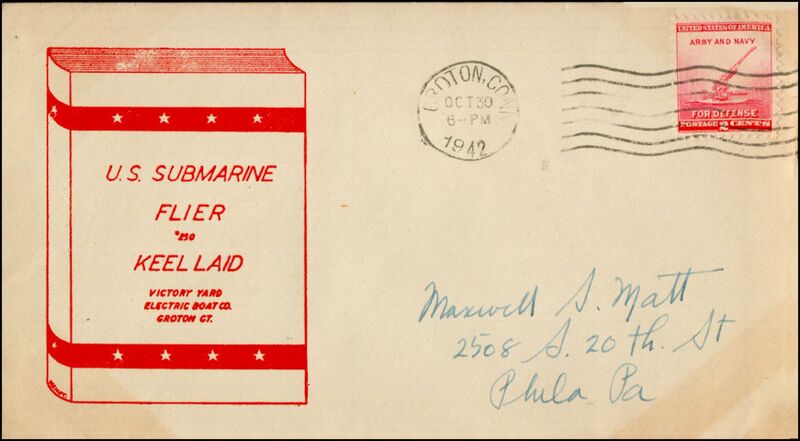 U.S. SUBMARINE
FLIER
#250
KEEL LAID
VICTORY YARD
ELECTRIC BOAT CO.
GROTON CT.
GROTON, CONN
OCT 30
6-PM
1942
UNITED STATES OF AMERICA
ARMY AND NAVY
FOR DEFENSE
POSTAGE 2 CENTS
Maxwell S. Matt
2508 S. 20 th. St
Phila Pa